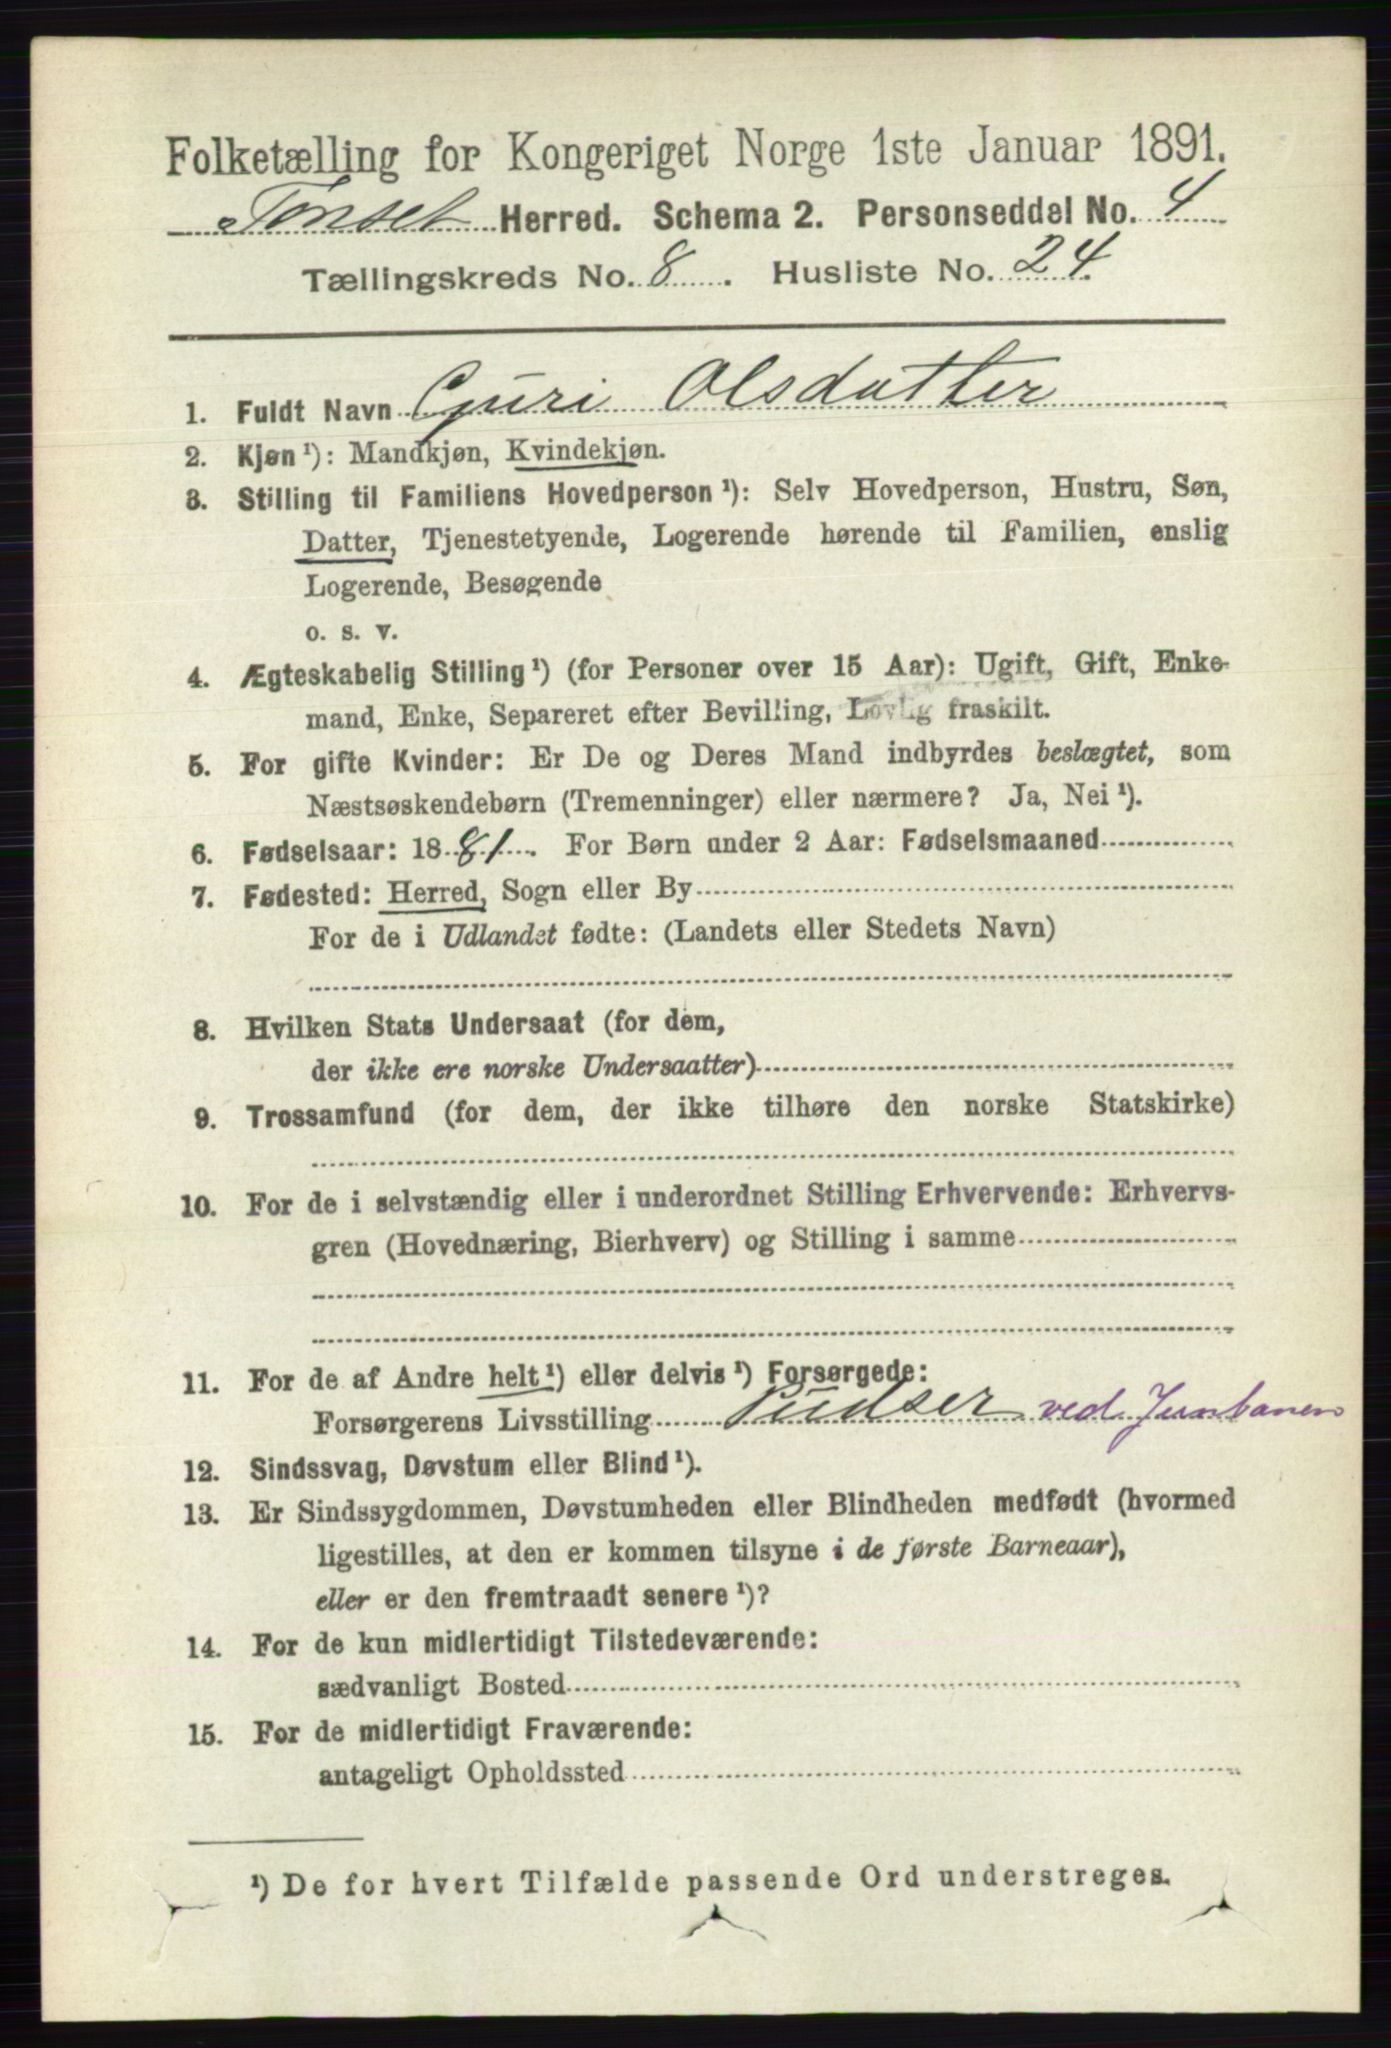 Folketælling for Kongeriget Norge 1ste Januar 1891.
Tønset Herred. Schema 2. Personseddel No. 4
Tællingskreds No. 8. Husliste No. 24.
1. Fuldt Navn Guri Olsdatter
2. Kjøn ¹): Mandkjøn, Kvindekjøn.
3. Stilling til Familiens Hovedperson ¹): Selv Hovedperson, Hustru, Søn,
Datter, Tjenestetyende, Logerende hørende til Familien, enslig
Logerende, Besøgende
o. s. v.
4. Ægteskabelig Stilling ¹) (for Personer over 15 Aar): Ugift, Gift, Enke-
mand, Enke, Separeret efter Bevilling, Lovlig fraskilt.
5. For gifte Kvinder: Er De og Deres Mand indbyrdes beslægtet, som
Næstsøskendebørn (Tremenninger) eller nærmere? Ja, Nei ¹).
6. Fødselsaar: 1881. For Børn under 2 Aar: Fødselsmaaned
7. Fødested: Herred, Sogn eller By
For de i Udlandet fødte: (Landets eller Stedets Navn)
8. Hvilken Stats Undersaat (for dem,
der ikke ere norske Undersaatter)
9. Trossamfund (for dem, der ikke tilhøre den norske Statskirke)
10. For de i selvstændig eller i underordnet Stilling Erhvervende: Erhvervs-
gren (Hovednæring, Bierhverv) og Stilling i samme
11. For de af Andre helt ¹) eller delvis ¹) Forsørgede:
Forsørgerens Livsstilling Pudser ved Jernbanen
12. Sindssvag, Døvstum eller Blind ¹).
13. Er Sindssygdommen, Døvstumheden eller Blindheden medfødt (hvormed
ligestilles, at den er kommen tilsyne i de første Barneaar),
eller er den fremtraadt senere ¹)?
14. For de kun midlertidigt Tilstedeværende:
sædvanligt Bosted
15. For de midlertidigt Fraværende:
antageligt Opholdssted
¹) De for hvert Tilfælde passende Ord understreges.